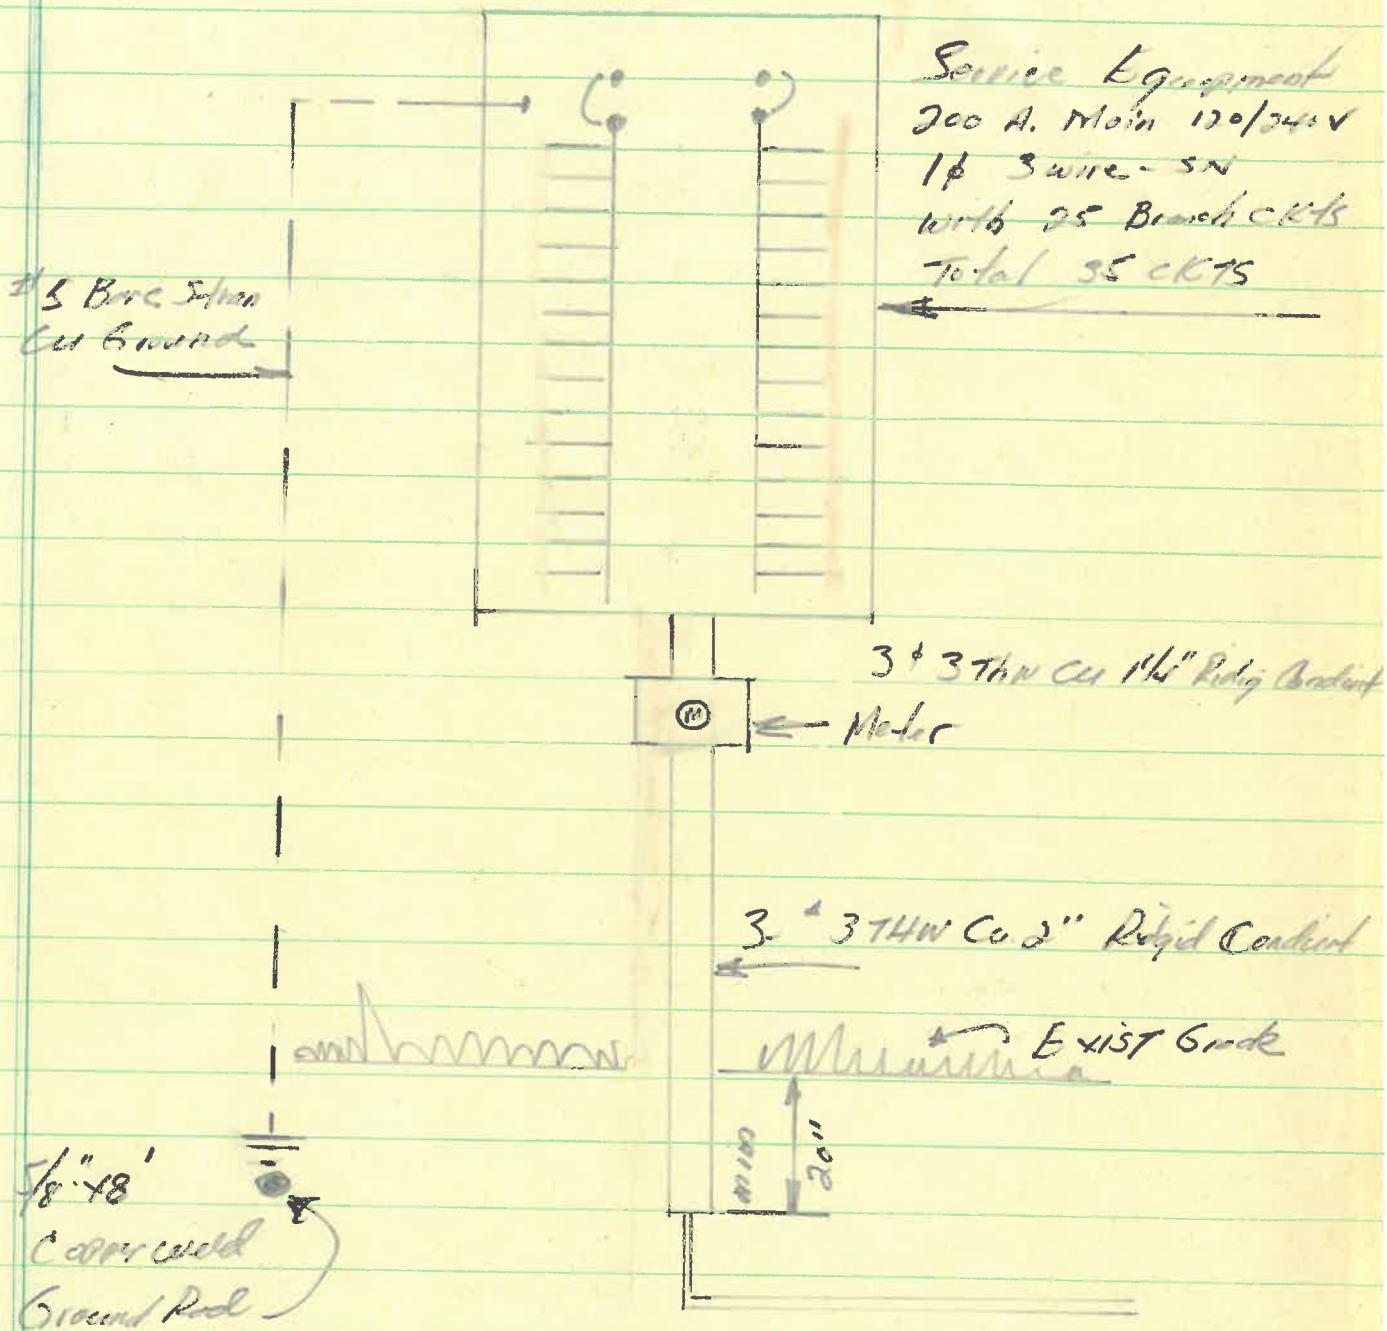 Service Equipment
200 A. Main 120/240V
1ϕ 3 wire - SN
with 25 Branch CKTS
Total 35 CKTS
Bare Stran
Cu Ground
3 # 3 THW Cu 1 1/4" Ridig Conduit
M
Meter
3 # 3 THW Cu 2" Ridgid Conduit
EXIST Grade
min
20"
5/8" x 8'
Copperweld
Ground Rod